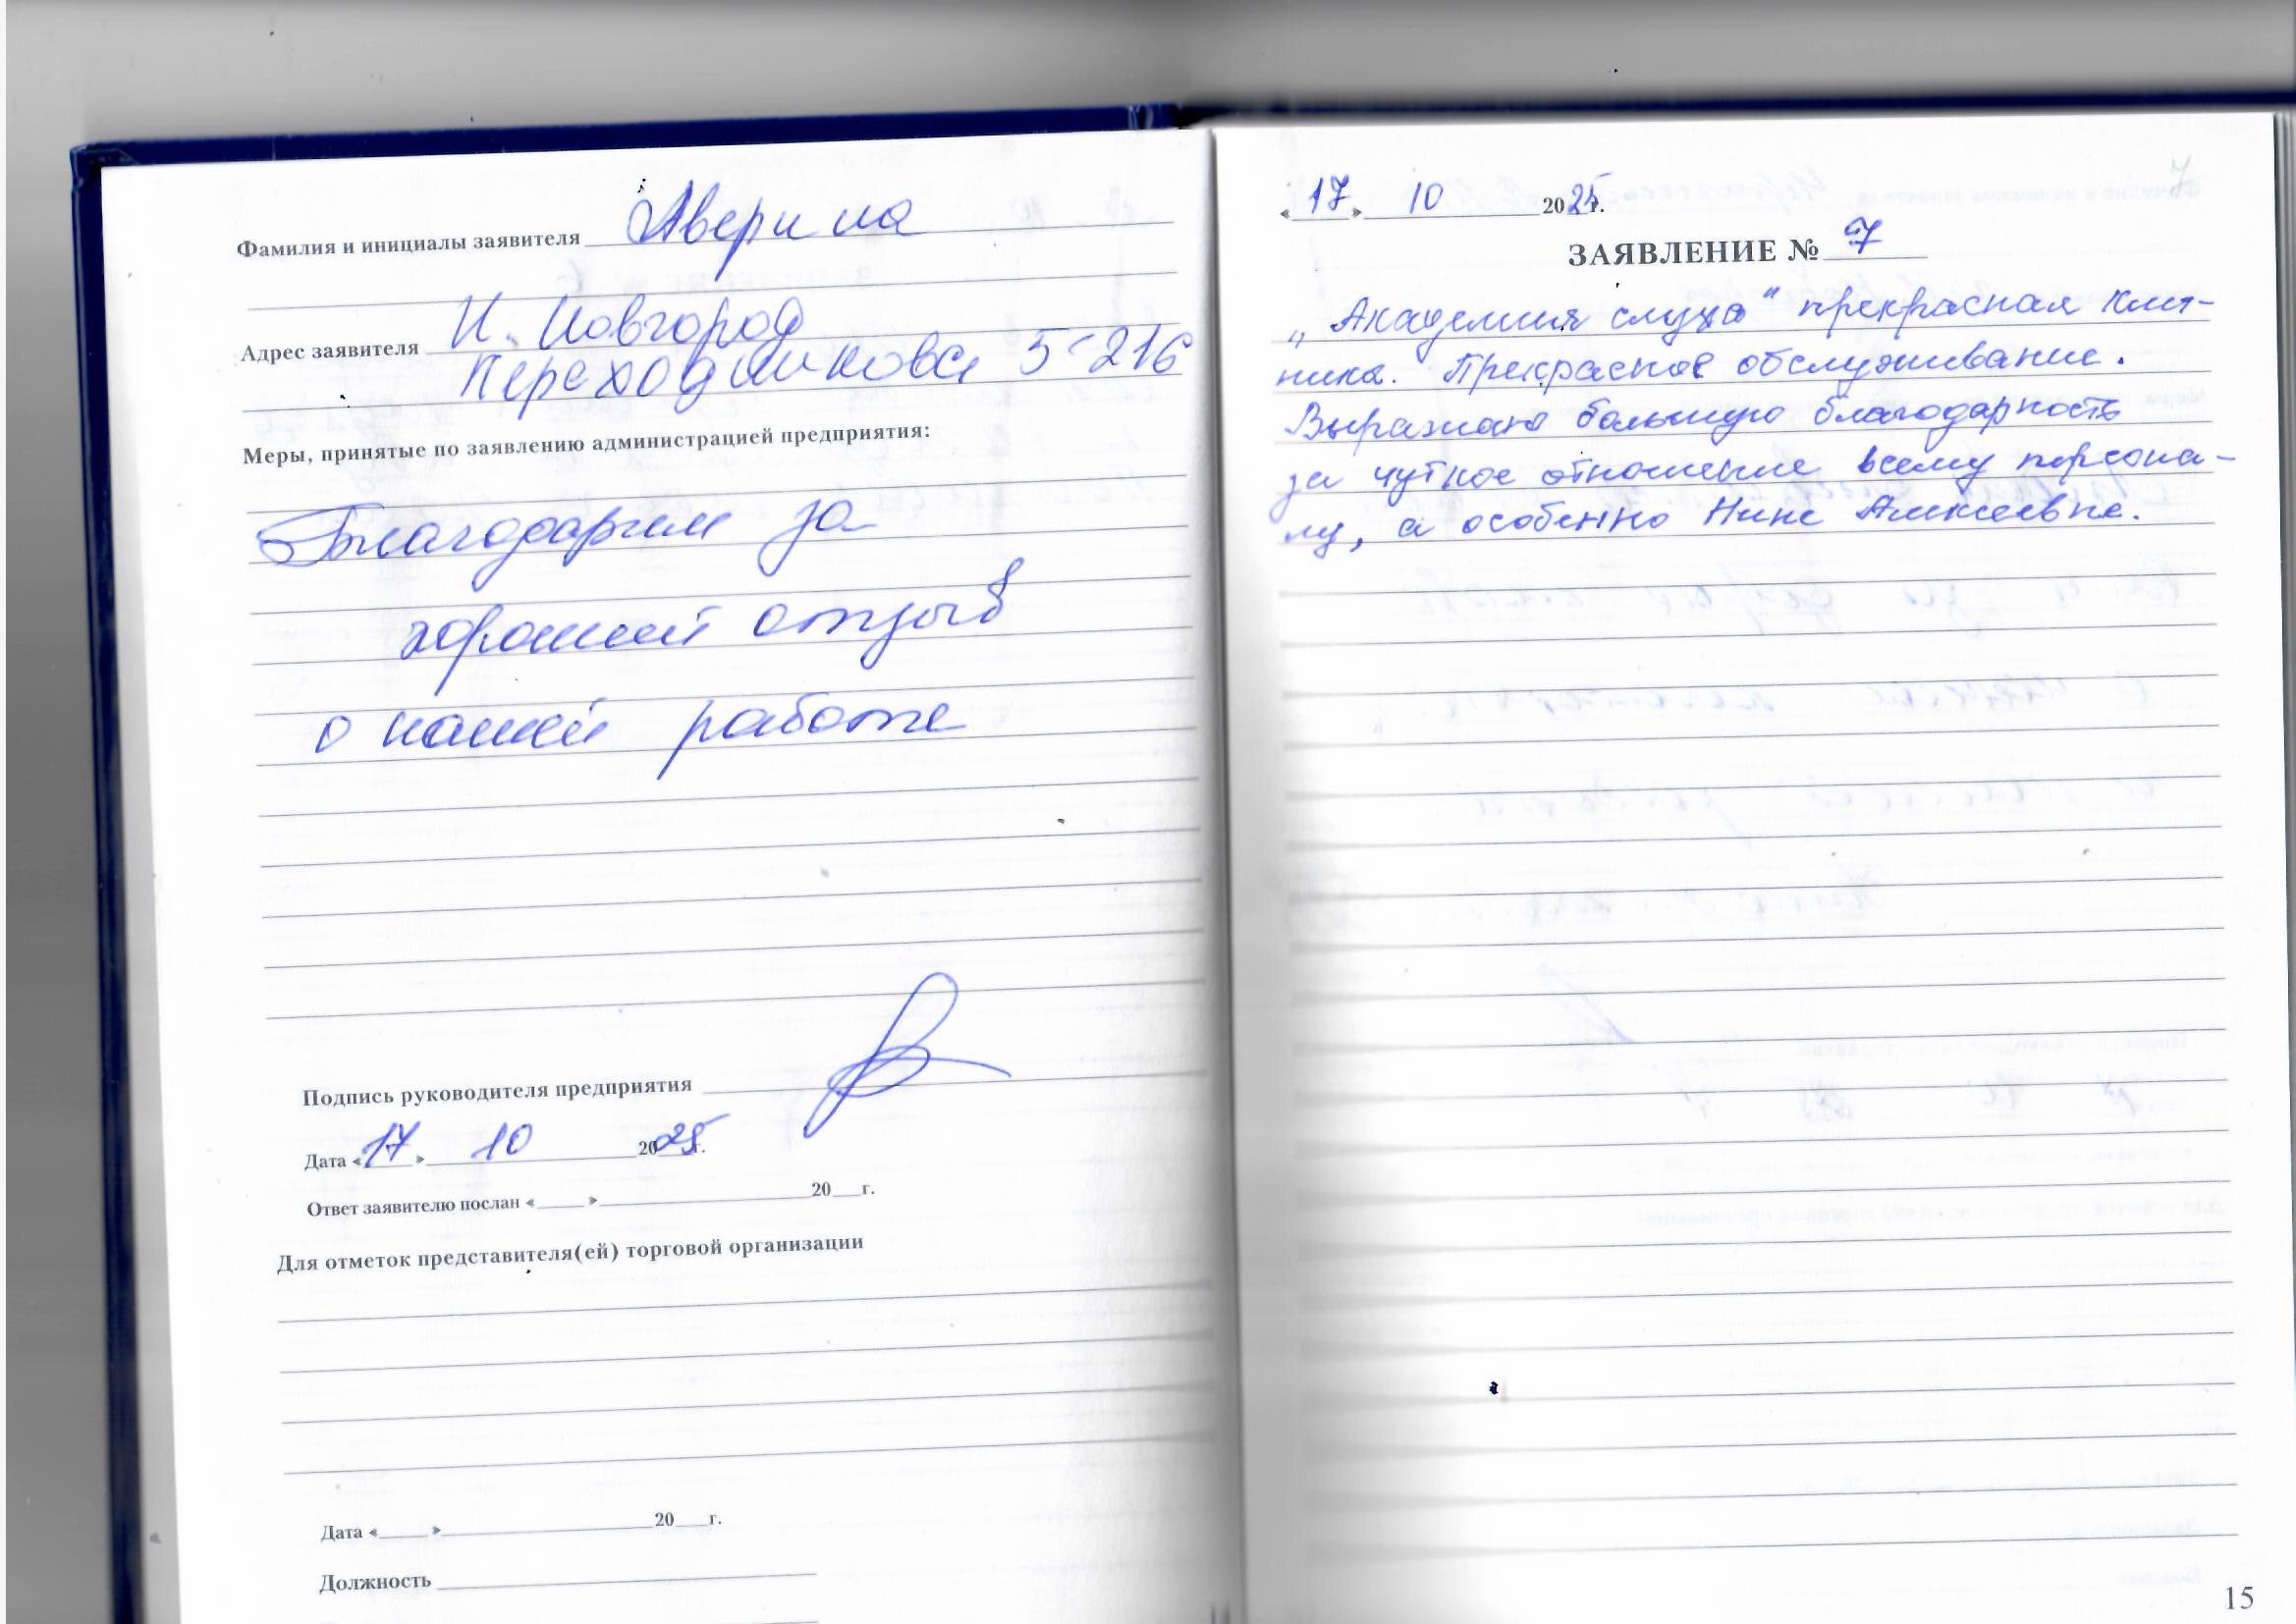 Фамилия и инициалы заявителя Аверина
Адрес заявителя Н. Новгород
Переходникова 5-216
Меры, принятые по заявлению администрацией предприятия:
Благодарим за
хороший отзыв
о нашей работе
Подпись руководителя предприятия
Дата «17» 10 2025 г.
Ответ заявителю послан «____» ____ 20__ г.
Для отметок представителя(ей) торговой организации
Дата «____» ____ 20__ г.
Должность
«17» 10 2025 г.
ЗАЯВЛЕНИЕ № 7
„Академия слуха“ прекрасная кли-
ника. Прекрасное обслуживание.
Выражаю большую благодарность
за чуткое отношение всему персона-
лу, а особенно Нине Алексеевне.
15